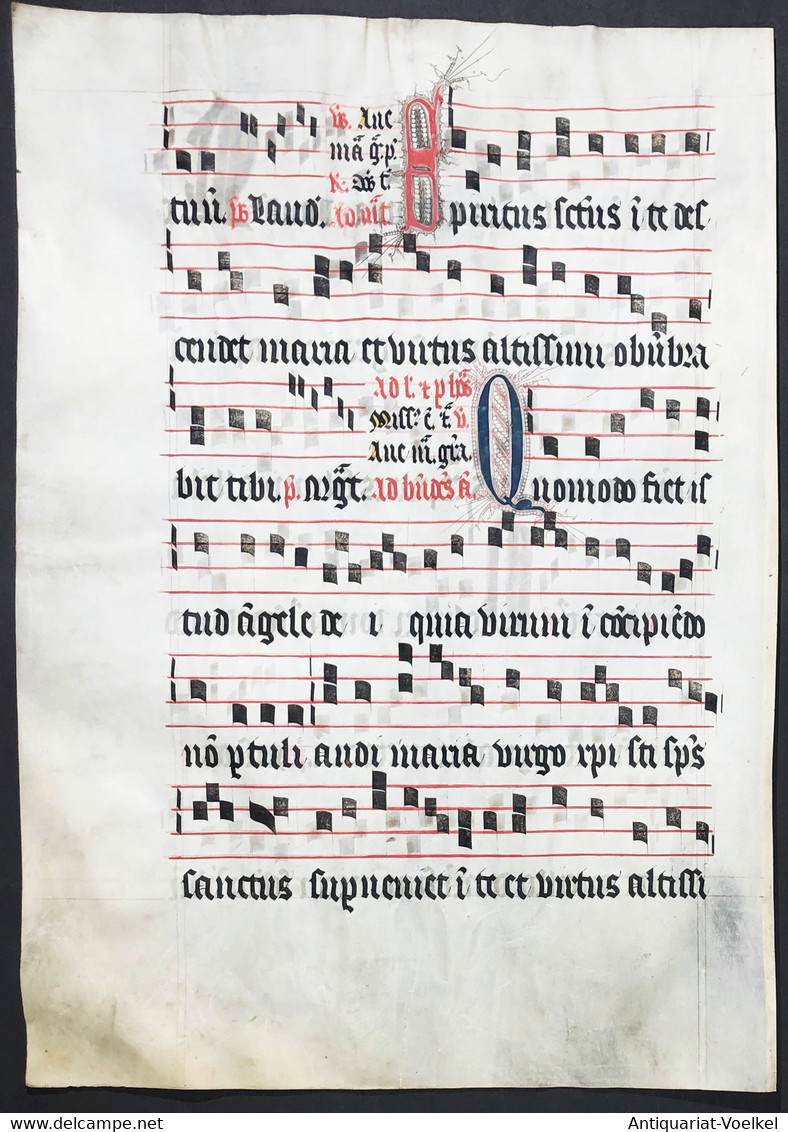 v̄s. Aue
mā g̃. p̄.
R.
tuū. ps Laud̄. Spiritus sctus ī te des
cendet maria et virtus altissimi obūbra
Ad l. et p
Aue m̄. gr̄a.
bit tibi. p̄. Mag̃t. Ad bn̄dc̄s ā. Quomodo fiet is
tud āgele de i quia virum ī cōcipiēdo
nō ptuli audi maria virgo xpi sti sp̄s
sanctus supueniet ī te et virtus altissi
Antiquariat-Voelkel